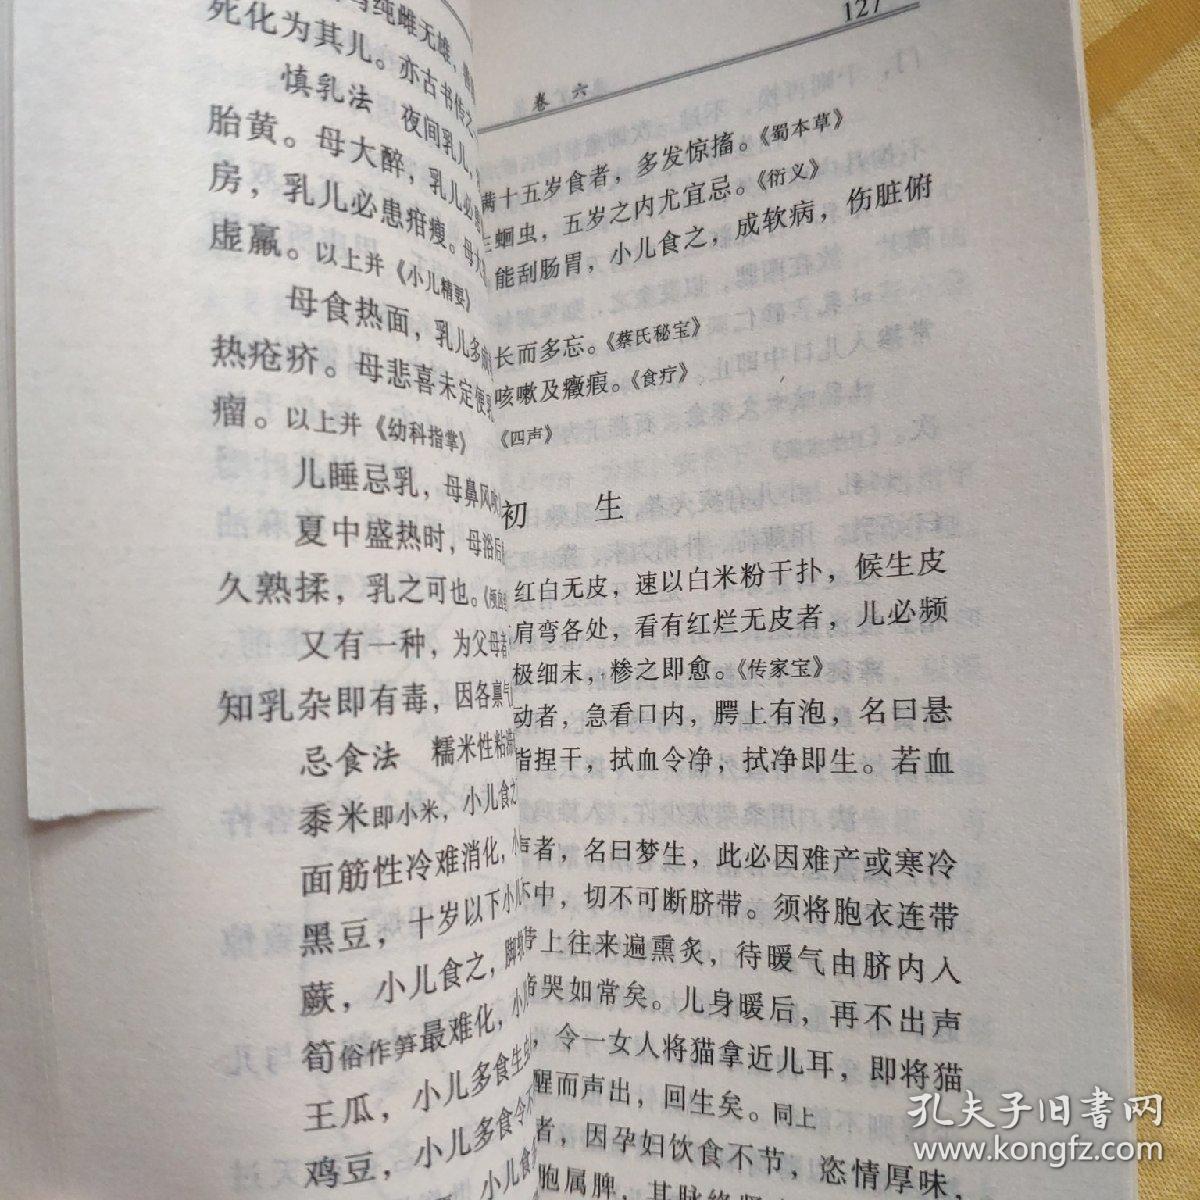 纯雌无雄，
死化为其儿。亦古书传之
慎乳法 夜间乳儿，
胎黄。母大醉，乳儿必
房，乳儿必患疳瘦。母大
虚羸。以上并《小儿精要》
母食热面，乳儿多
热疮疥。母悲喜未定便乳
瘤。以上并《幼科指掌》
儿睡忌乳，母鼻风吹
夏中盛热时，母浴后
久熟揉，乳之可也。
又有一种，为父母者
知乳杂即有毒，因各禀气
忌食法 糯米性粘滞
黍米即小米，小儿食之
面筋性冷难消化，小
黑豆，十岁以下小儿
蕨，小儿食之，脚
筍俗作笋最难化，小儿
王瓜，小儿多食生
鸡豆，小儿多食令不
小儿食
127
卷六
满十五岁食者，多发惊搐。《蜀本草》
蛔虫，五岁之内尤宜忌。《衍义》
能刮肠胃，小儿食之，成软病，伤脏腑
长而多忘。《蔡氏秘宝》
咳嗽及癥瘕。《食疗》
《四声》
初生
红白无皮，速以白米粉干扑，候生皮
肩弯各处，看有红烂无皮者，儿必频
极细末，糁之即愈。《传家宝》
动者，急看口内，腭上有泡，名曰悬
指捏干，拭血令净，拭净即生。若血
声者，名曰梦生，此必因难产或寒冷
中，切不可断脐带。须将胞衣连带
上往来遍熏炙，待暖气由脐内入
啼哭如常矣。儿身暖后，再不出声
，令一女人将猫拿近儿耳，即将猫
醒而声出，回生矣。同上
者，因孕妇饮食不节，恣情厚味，
胞属脾，其脉络
孔夫子旧书网
www.kongfz.com